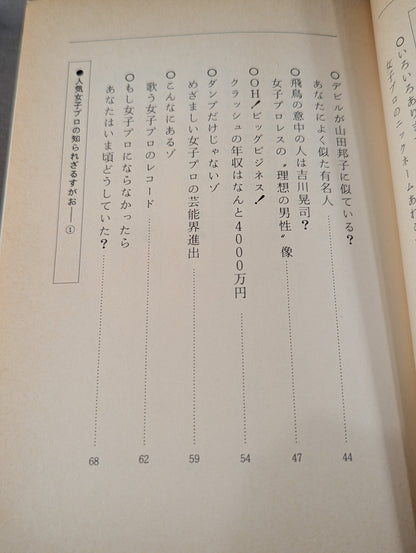 ○いろいろあり
女子プロのニックネームあれ
○デビルが山田邦子に似ている?
あなたによく似た有名人……44
○飛鳥の意中の人は吉川晃司?
女子プロレスの〝理想の男性〟像……47
○OH!ビッグビジネス!
クラッシュの年収はなんと4000万円……54
○ダンプだけじゃないゾ
めざましい女子プロの芸能界進出……59
○こんなにあるゾ
歌う女子プロのレコード……62
○もし女子プロにならなかったら
あなたはいま頃どうしていた?……68
●人気女子プロの知られざるすがお——①